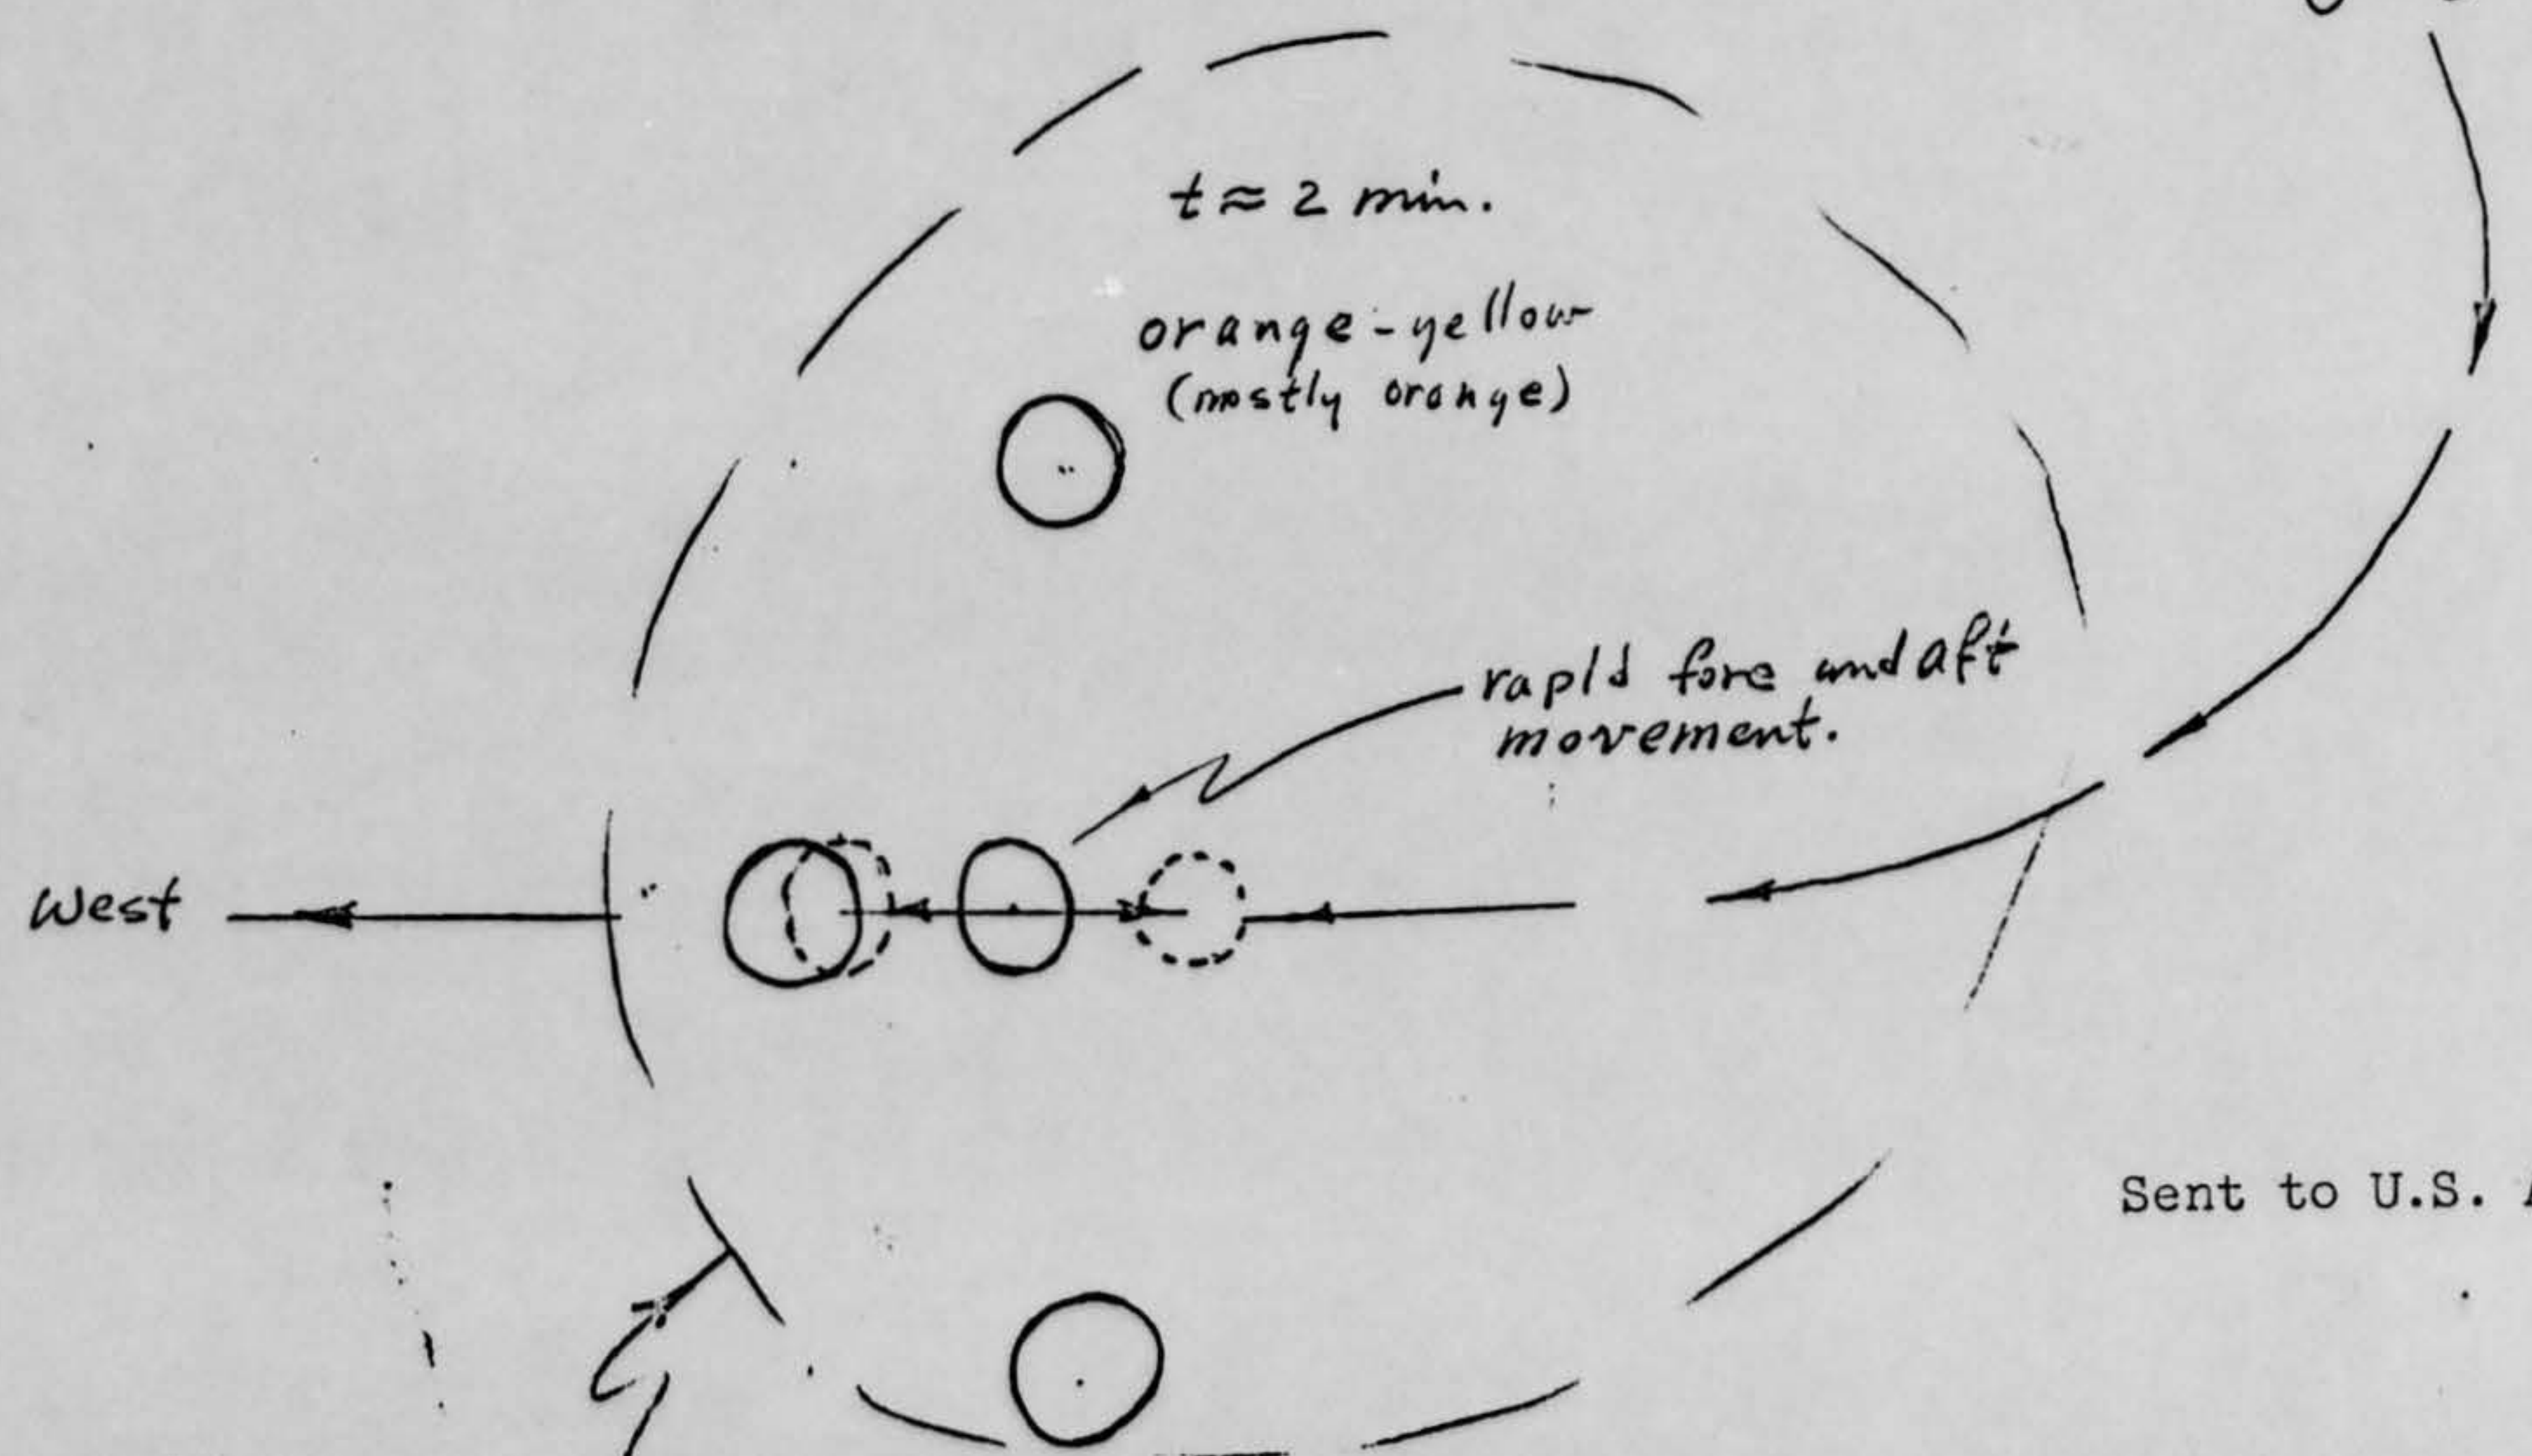 t ≈ 2 min.
orange-yellow
(mostly orange)
rapid fore and aft
movement.
West
Sent to U.S.